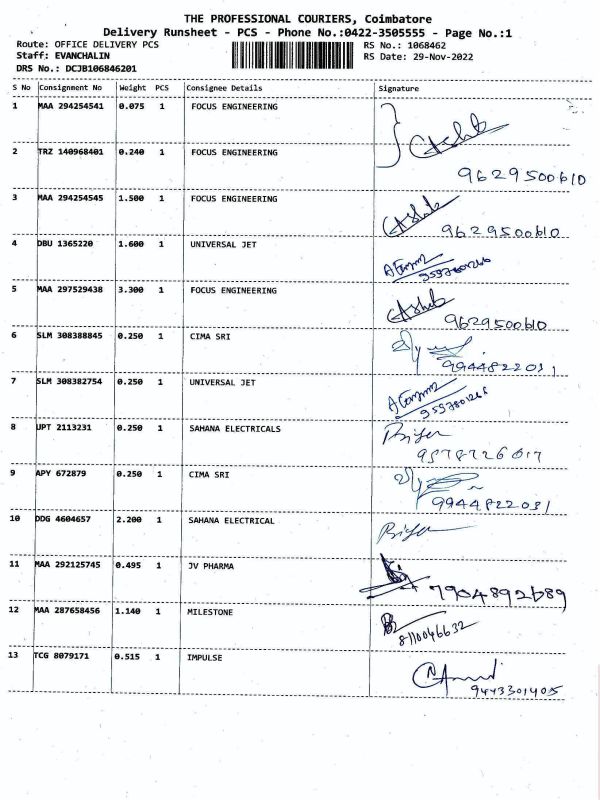 THE PROFESSIONAL COURIERS, Coimbatore
Delivery Runsheet - PCS - Phone No.:0422-3505555 - Page No.:1
Route: OFFICE DELIVERY PCS RS No.: 1068462
Staff: EVANCHALIN RS Date: 29-Nov-2022
DRS No.: DCJB106846201
S No Consignment No Weight PCS Consignee Details Signature
1 MAA 294254541 0.075 1 FOCUS ENGINEERING
2 TRZ 140968401 0.240 1 FOCUS ENGINEERING
9629500610
3 MAA 294254545 1.500 1 FOCUS ENGINEERING
9629500610
4 DBU 1365220 1.600 1 UNIVERSAL JET
5 MAA 297529438 3.300 1 FOCUS ENGINEERING
9629500610
6 SLM 308388845 0.250 1 CIMA SRI
9944822031
7 SLM 308382754 0.250 1 UNIVERSAL JET
8 UPT 2113231 0.250 1 SAHANA ELECTRICALS
9 APY 672879 0.250 1 CIMA SRI
9944822031
10 DDG 4604657 2.200 1 SAHANA ELECTRICAL
11 MAA 292125745 0.495 1 JV PHARMA
7904892689
12 MAA 287658456 1.140 1 MILESTONE
8110046632
13 TCG 8079171 0.515 1 IMPULSE
9443301405